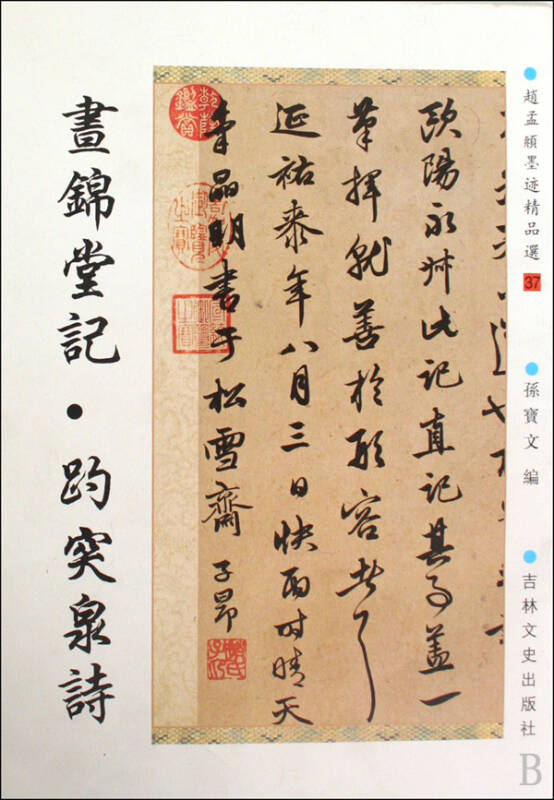 趙孟頫墨迹精品選 37
孫寶文 編
吉林文史出版社
歐陽永叔此記直記其事蓋一
筆揮就善於形容者
延祐叁年八月三日快雨時晴天
氣晶明書于松雪齋 子昂
趙氏子昂
乾隆鑑賞
晝錦堂記•趵突泉詩
B